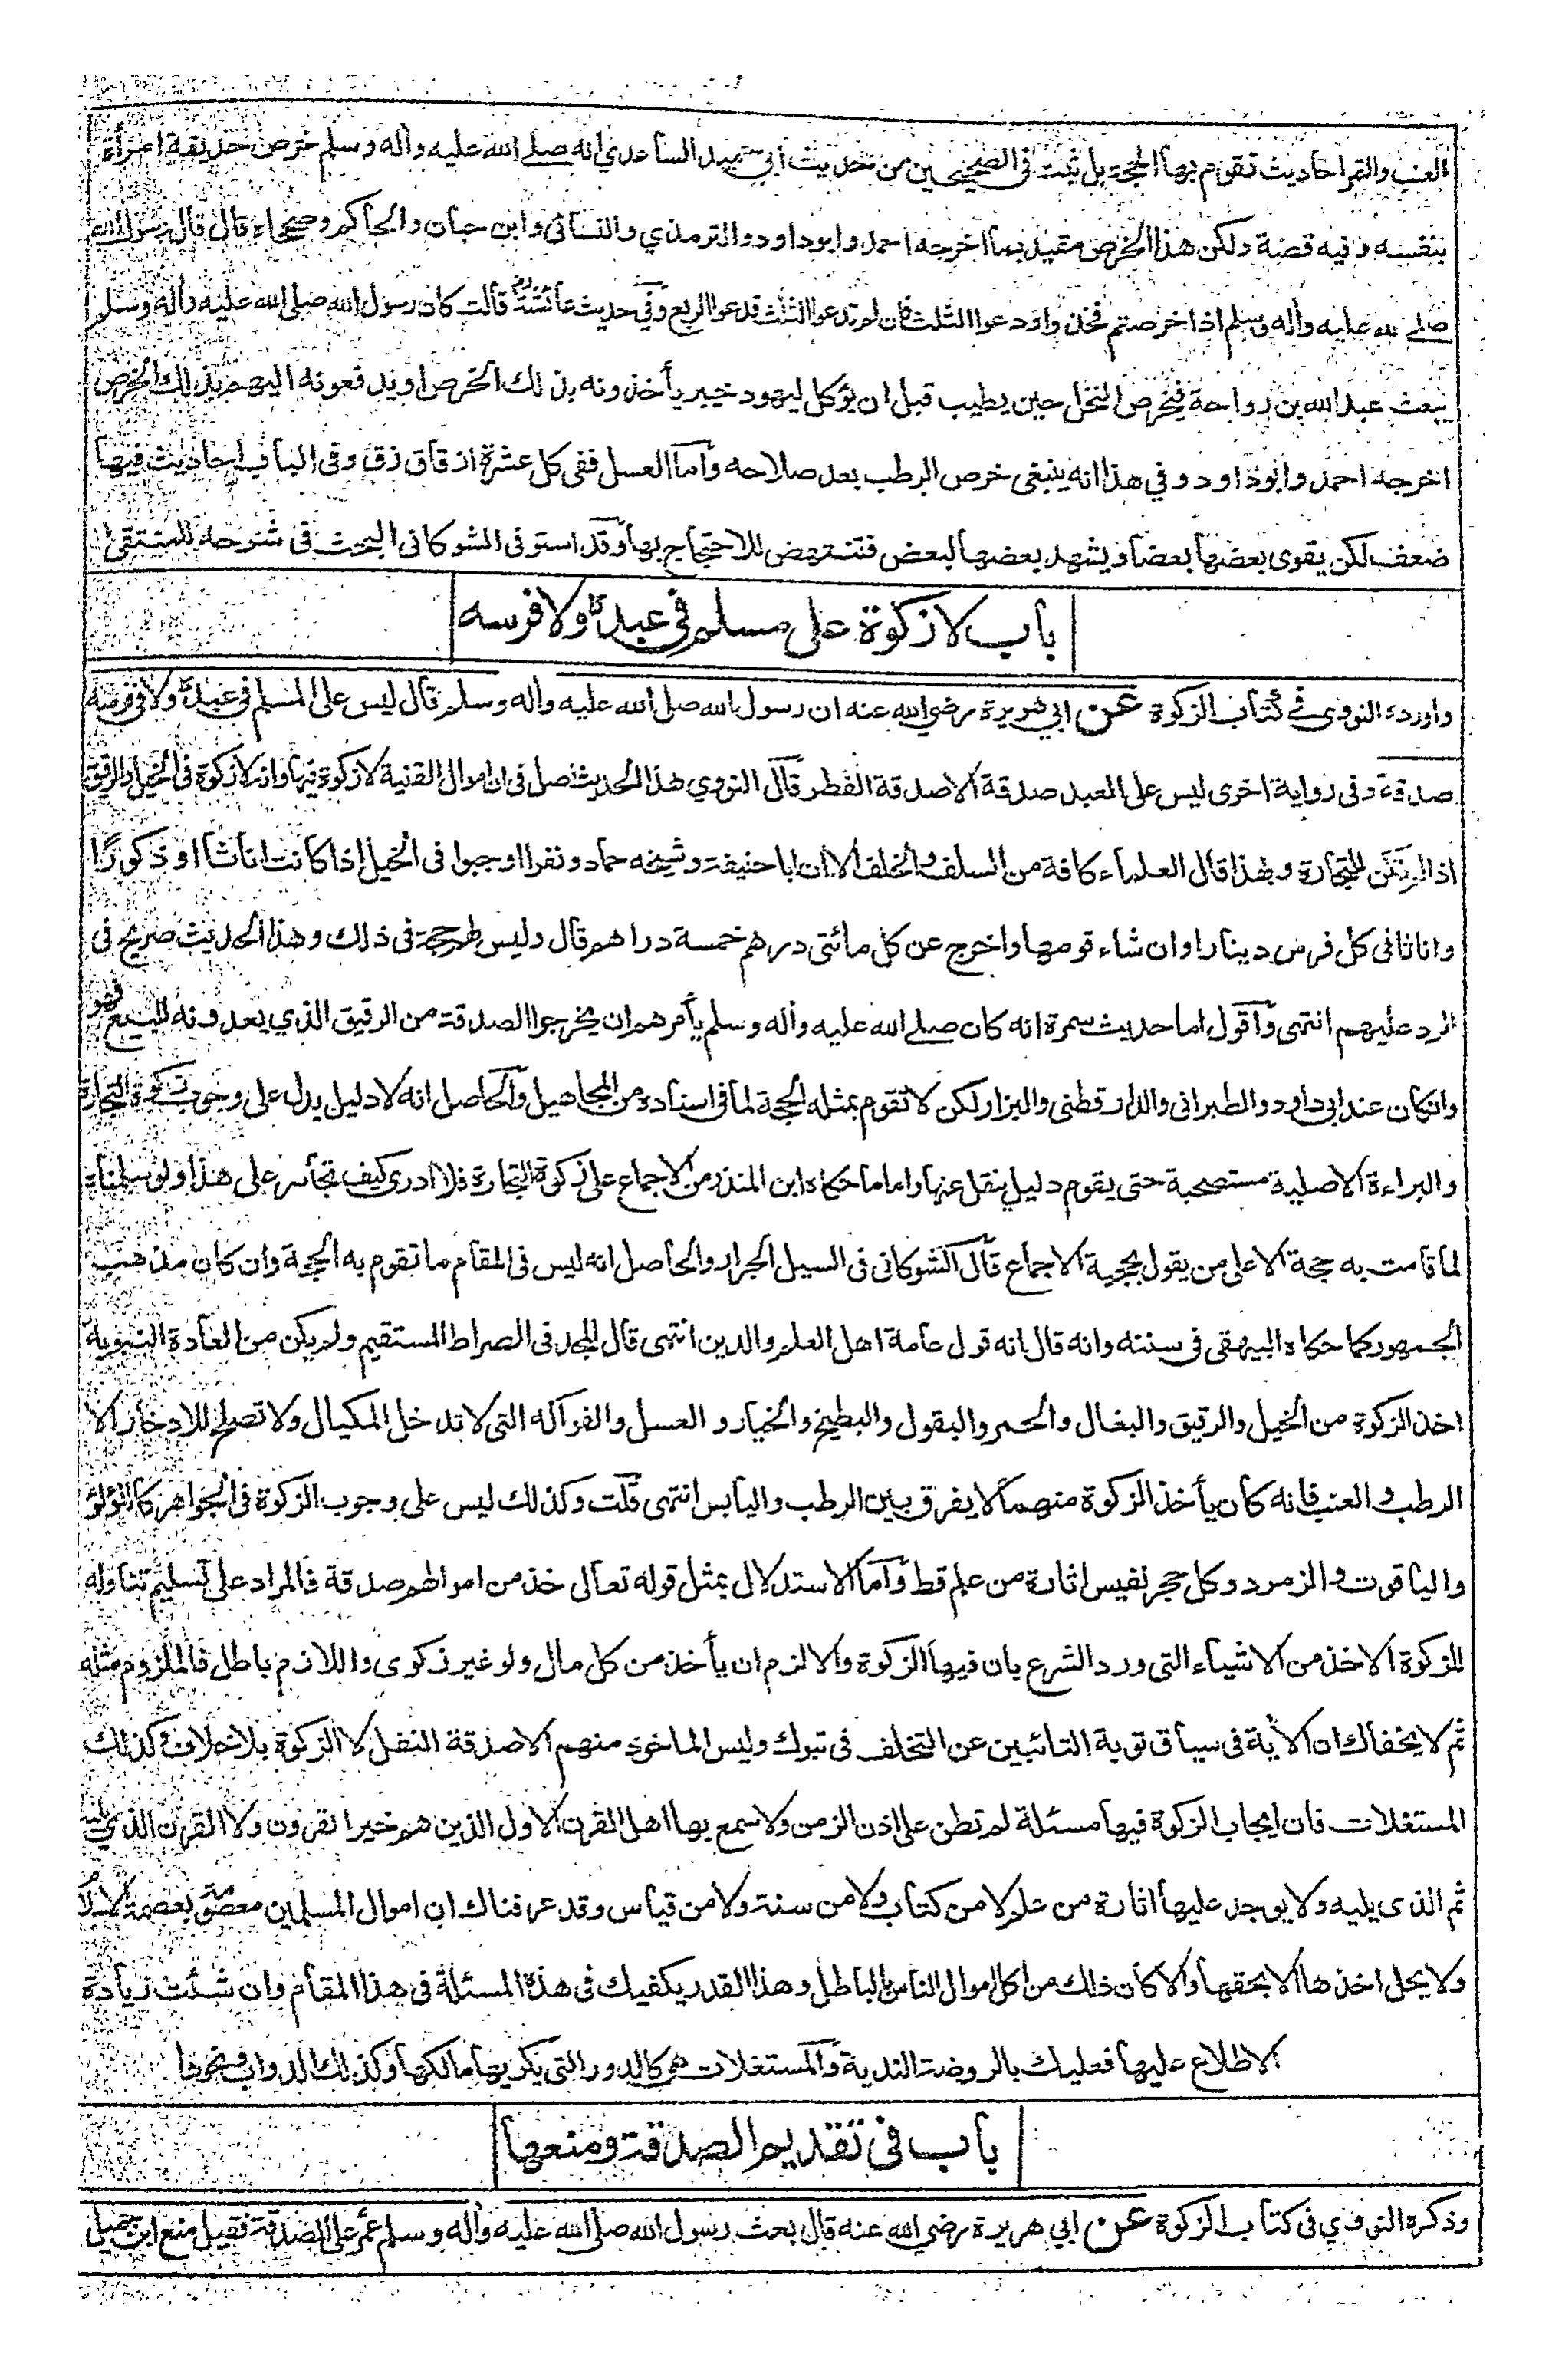 العنب والتمر احاديث تقوم بها الحجة بل ثبت فى الصحيحين من حديث أبي حميد الساعدي انه صلى الله عليه وأله وسلم خرص حديقة امرأة
بنفسه وفيه قصة ولكن هذا الخرص مقيد بما اخرجه احمد وابوداود والترمذي والنسائى وابن حبان والحاكم وصححاه قال قال رسول الله
صلى الله عليه وأله وسلم اذا خرصتم فخذوا ودعوا الثلث فان لم تدعوا الثلث فدعوا الربع وفي حديث عائشة رض قالت كان رسول الله صلى الله عليه وأله وسلم
يبعث عبد الله بن رواحة فيخرص النخل حين يطيب قبل ان يؤكل ليهود خيبر يأخذونه بذلك الخرص او يدفعونه اليهم بذلك الخرص
اخرجه احمد وابوداود وفي هذا انه ينبغى خرص الرطب بعد صلاحه وأما العسل ففى كل عشرة ازقاق زق وفى الباب احاديث فيها
ضعف لكن يقوى بعضها بعضا ويشهد بعضها لبعض فتنتهض للاحتجاج بها وقد استوفى الشوكانى البحث فى شرحه للمنتقى
باب لا زكوة على مسلم في عبده ولا فرسه
واورده النووى في كتاب الزكوة عن ابي هريرة رضي الله عنه ان رسول الله صلى الله عليه وأله وسلم قال ليس على المسلم في عبده ولا فى فرسه
صدقة وفى رواية اخرى ليس على العبد صدقة الا صدقة الفطر قال النووي هذا الحديث اصل فى ان اموال القنية لا زكوة فيها وانه لا زكوة فى الخيل والرقيق
اذا لم تكن للتجارة وبهذا قال العلماء كافة من السلف والخلف الا ان ابا حنيفة وشيخه حماد ونفرا اوجبوا فى الخيل اذا كانت اناثا او ذكورًا
واناثا فى كل فرس دينارا وان شاء قومها واخرج عن كل مائتى درهم خمسة دراهم قال وليس لهم حجة فى ذلك وهذا الحديث صريح فى
الرد عليهم انتهى وأقول اما حديث سمرة انه كان صلى الله عليه وأله وسلم يأمرهم ان يخرجوا الصدقة من الرقيق الذي يعدونه للبيع فهو
وان كان عند ابى داود والطبرانى والدارقطنى والبزار لكن لا تقوم بمثله الحجة لما فى اسناده من المجاهيل والحاصل انه لا دليل يدل على وجوب زكوة التجارة
والبراءة الاصلية مستصحبة حتى يقوم دليل ينقل عنها واما ما حكاه ابن المنذر من الاجماع على زكوة التجارة فلا ادرى كيف تجاسر على هذا ولو سلمناه
لما قامت به حجة الا على من يقول بحجية الاجماع قال الشوكانى فى السيل الجرار والحاصل انه ليس فى المقام ما تقوم به الحجة وان كان مذهب
الجمهور كما حكاه البيهقى فى سننه وانه قال انه قول عامة اهل العلم والدين انتهى قال المجد فى الصراط المستقيم ولم يكن من العادة النبوية
اخذ الزكوة من الخيل والرقيق والبغال والحمر والبقول والبطيخ والخيار والعسل والفواكه التى لا تدخل المكيال ولا تصلح للادخار الا
الرطب والعنب فانه كان يأخذ الزكوة منهما لا يفرق بين الرطب واليابس انتهى قلت وكذلك ليس على وجوب الزكوة فى الجواهر كاللؤلؤ
والياقوت والزمرد وكل حجر نفيس اثارة من علم قط وأما الاستدلال بمثل قوله تعالى خذ من اموالهم صدقة فالمراد على تسليم تناوله
للزكوة الاخذ من الاشياء التى ورد الشرع بان فيها الزكوة والا لزم ان يأخذ من كل مال ولو غير زكوى واللازم باطل فالملزوم مثله
ثم لا يخفاك ان الأية فى سياق توبة التائبين عن التخلف فى تبوك وليس الماخوذ منهم الا صدقة النفل لا الزكوة بلا خلاف وكذلك
المستغلات فان ايجاب الزكوة فيها مسئلة لم تطن على اذن الزمن ولا سمع بها اهل القرن الاول الذين هم خير القرون ولا القرن الذي يليه
ثم الذى يليه ولا يوجد عليها اثارة من علم لا من كتاب ولا من سنة ولا من قياس وقد عرفناك ان اموال المسلمين معصومة بعصمة الاسلام
ولا يحل اخذها الا بحقها والا كان ذلك من اكل اموال الناس بالباطل وهذا القدر يكفيك فى هذه المسئلة فى هذا المقام وان شئت زيادة
الاطلاع عليها فعليك بالروضة الندية والمستغلات هى كالدور التى يكريها مالكها وكذلك الدواب ونحوها
باب فى تقديم الصدقة ومنعها
وذكره النووي فى كتاب الزكوة عن ابي هريرة رضي الله عنه قال بعث رسول الله صلى الله عليه وأله وسلم عمر على الصدقة فقيل منع ابن جميل